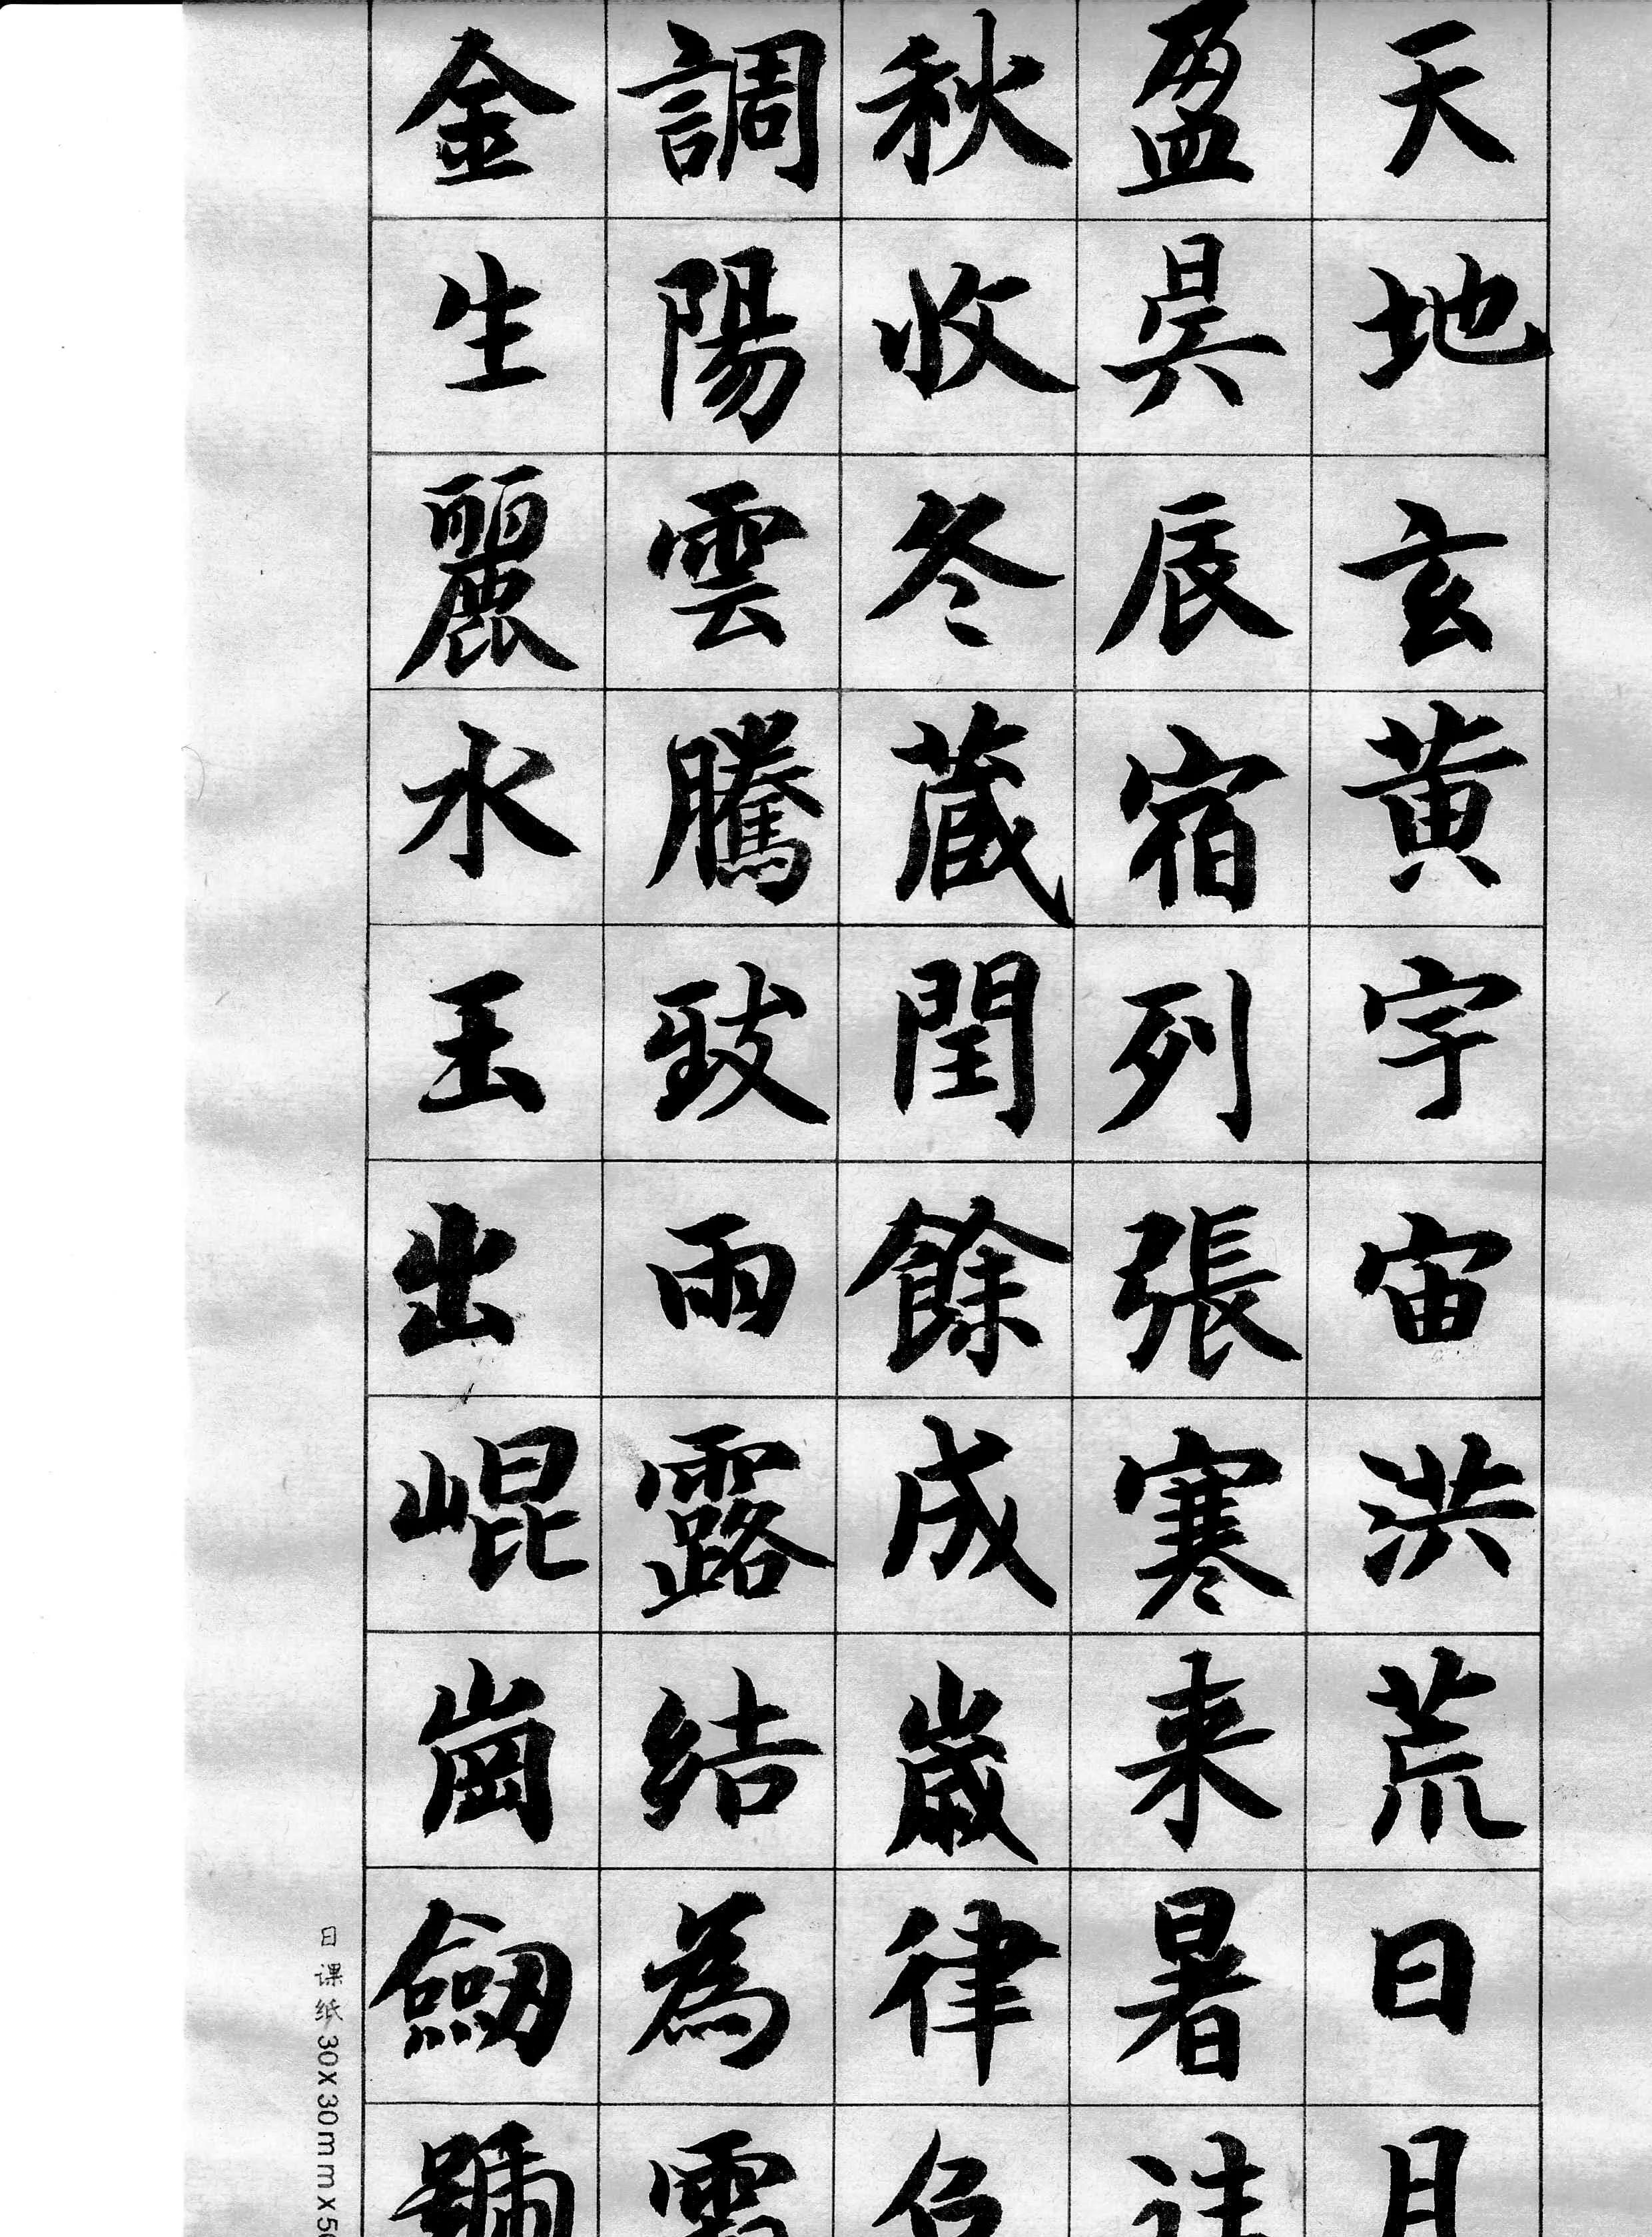 天地玄黃宇宙洪荒日月
盈昃辰宿列張寒来暑往
秋收冬蔵閏餘成歲律召
調陽雲騰致雨露結為霜
金生麗水玉出崐崗劔號
日课纸 30x30mmx50